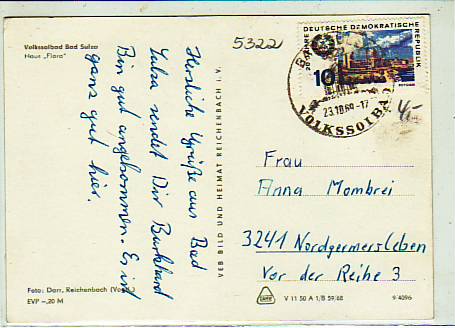 Volkssolbad Bad Sulza
Haus „Flora"
5322
Herzliche Grüße aus Bad
Sulza sendet Dir Burkhard
Bin gut angekommen. Es ist
ganz gut hier.
VEB BILD UND HEIMAT REICHENBACH i. V.
20 JAHRE DEUTSCHE DEMOKRATISCHE REPUBLIK
10
23.10.69-17
VOLKSSOLBAD
Frau
Anna Mombrei
3241 Nordgermersleben
Vor der Reihe 3
Foto: Darr, Reichenbach (Vogtl.)
EVP –,20 M
V 11 50 A 1/B 59/68
9 4096